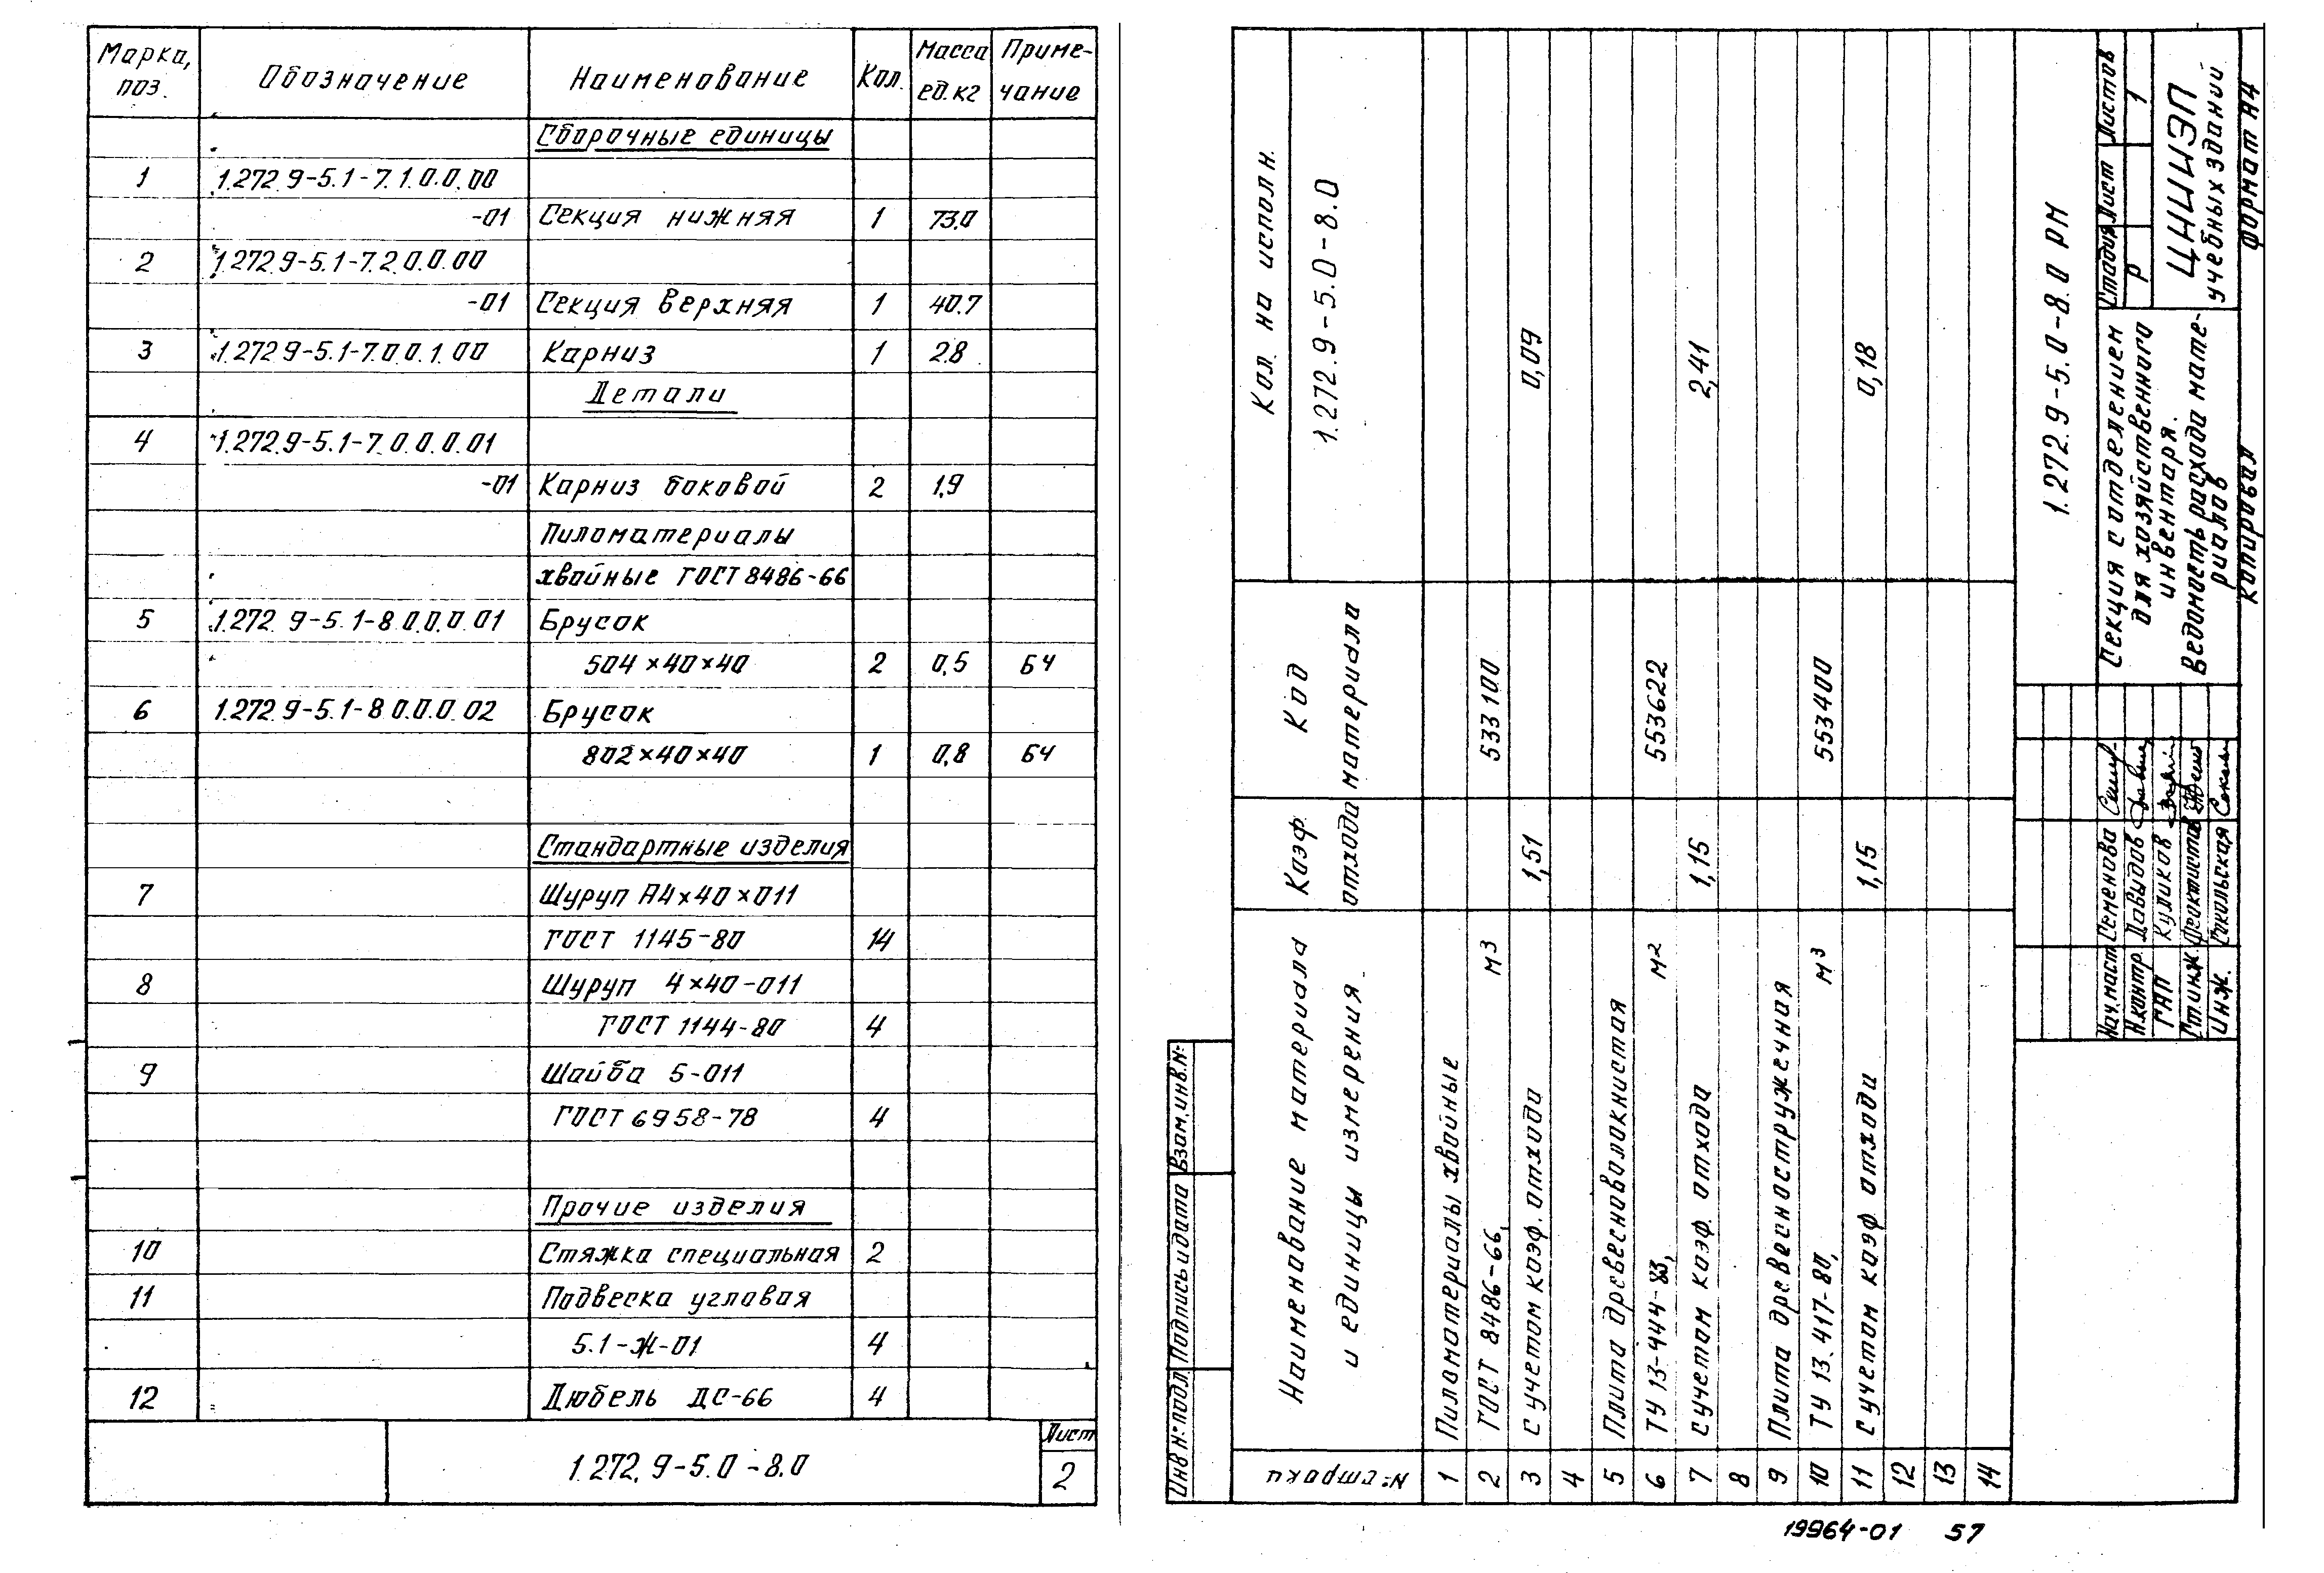 Марка, поз. Обозначение Наименование Кол. Масса ед.кг Приме-чание
Сборочные единицы
1 1.272.9-5.1-7.1.0.0.00
-01 Секция нижняя 1 73.0
2 1.272.9-5.1-7.2.0.0.00
-01 Секция верхняя 1 40.7
3 1.272.9-5.1-7.0.0.1.00 Карниз 1 2.8
Детали
4 1.272.9-5.1-7.0.0.0.01
-01 Карниз боковой 2 1,9
Пиломатериалы
хвойные ГОСТ 8486-66
5 1.272.9-5.1-8.0.0.0.01 Брусок
504×40×40 2 0,5 БЧ
6 1.272.9-5.1-8.0.0.0.02 Брусок
802×40×40 1 0,8 БЧ
Стандартные изделия
7 Шуруп А4×40×011
ГОСТ 1145-80 14
8 Шуруп 4×40-011
ГОСТ 1144-80 4
9 Шайба 5-011
ГОСТ 6958-78 4
Прочие изделия
10 Стяжка специальная 2
11 Подвеска угловая
5.1-Ж-01 4
12 Дюбель ДС-66 4
1.272.9-5.0-8.0
Лист
2
№ строки
Наименование материала
и единицы измерения
Коэф.
отхода
Код
материала
Кол. на исполн.
1.272.9-5.0-8.0
1 Пиломатериалы хвойные
2 ГОСТ 8486-66, м3 533100
3 с учетом коэф. отхода 1,51 0,09
4
5 Плита древесноволокнистая
6 ТУ 13-444-83, м2 553622
7 с учетом коэф. отхода 1,15 2,41
8
9 Плита древесностружечная
10 ТУ 13.417-80, м3 553400
11 с учетом коэф. отхода 1,15 0,18
12
13
14
1.272.9-5.0-8.0 РМ
Нач.маст Семенова
Н.контр. Давыдов
ГАП Куликов
Ст.инж. Феоктистов
Инж. Сокольская
Секция с отделением
для хозяйственного
инвентаря.
Ведомость расхода мате-
риалов
Стадия Лист Листов
Р 1
ЦНИИЭП
учебных зданий
Копировал Формат А4
Инв.№ подл. Подпись и дата Взам.инв.№
19964-01 57